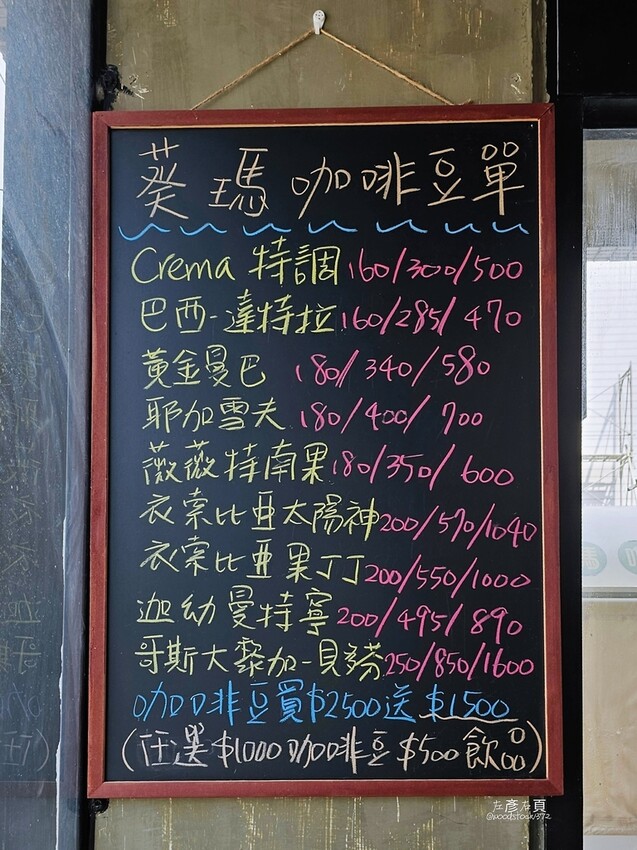 葵瑪咖啡豆單
Crema 特調 160/300/500
巴西-達特拉 160/285/470
黃金曼巴 180/340/580
耶加雪夫 180/400/700
薇薇特南果 180/350/600
衣索比亞太陽神 200/570/1040
衣索比亞果丁丁 200/550/1000
迦幼曼特寧 200/495/890
哥斯大黎加-貝多芬 250/850/1600
咖啡豆買$2500送$1500
(任選$1000咖啡豆$500飲品)
左彥右頁
@woodstock372